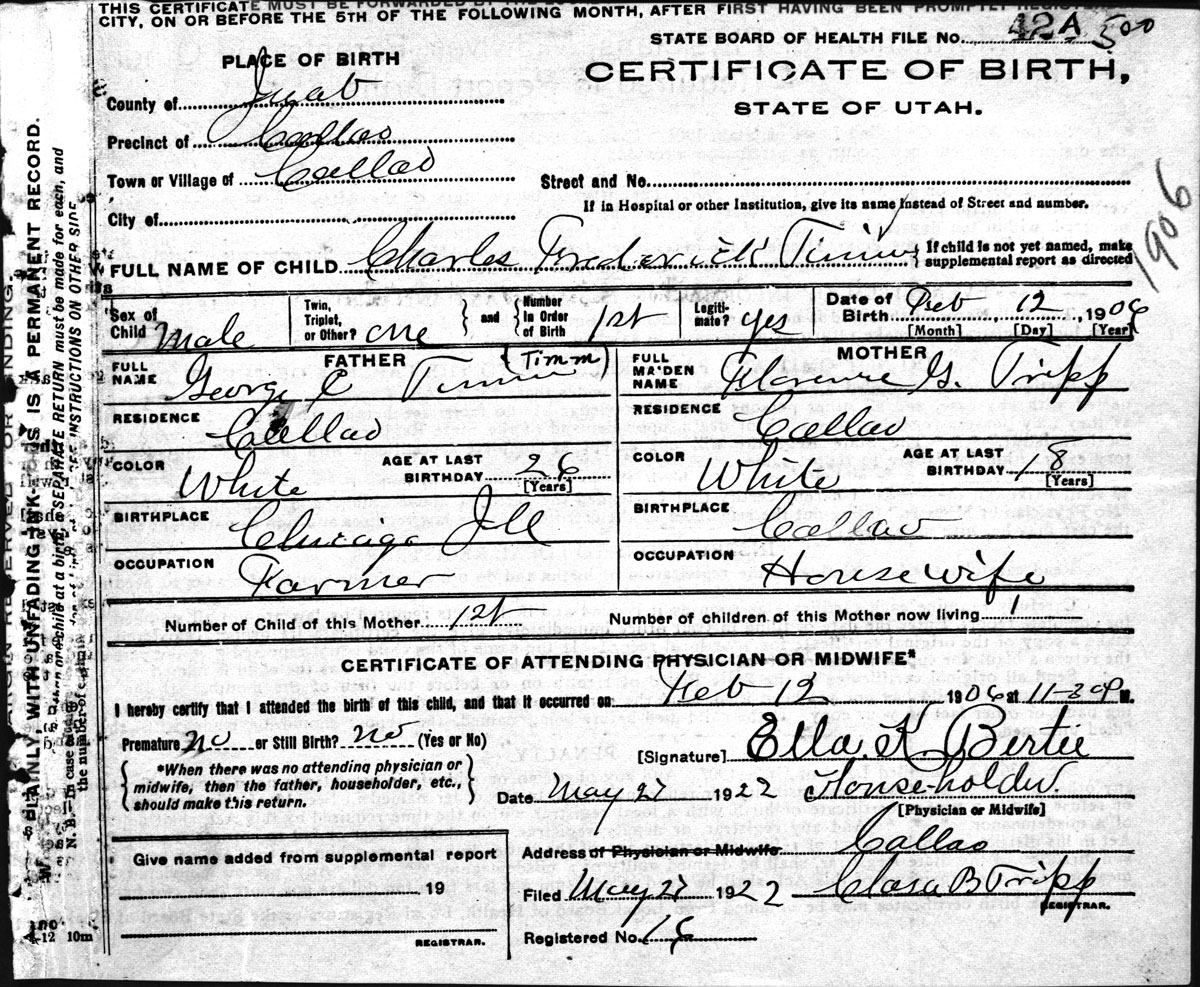 THIS CERTIFICATE MUST BE FORWARDED BY
CITY, ON OR BEFORE THE 5TH OF THE FOLLOWING MONTH, AFTER FIRST HAVING BEEN PROMPTLY REGISTERED
STATE BOARD OF HEALTH FILE NO. 42A 500
PLACE OF BIRTH
CERTIFICATE OF BIRTH,
STATE OF UTAH.
County of Juab
Precinct of Callao
Town or Village of Callao
Street and No.
If in Hospital or other Institution, give its name instead of Street and number.
City of
1906
FULL NAME OF CHILD Charles Frederick Timm
If child is not yet named, make
supplemental report as directed
Sex of Child Male
Twin, Triplet, or Other? one
and
Number In Order of Birth 1st
Legiti- mate? yes
Date of Birth Feb 12, 1906
[Month] [Day] [Year]
FATHER
FULL NAME George C Timm (Timm)
MOTHER
FULL MAIDEN NAME Florence G. Tripp
RESIDENCE Callao
RESIDENCE Callao
COLOR White
AGE AT LAST BIRTHDAY 26
[Years]
COLOR White
AGE AT LAST BIRTHDAY 18
[Years]
BIRTHPLACE Chicago Ill
BIRTHPLACE Callao
OCCUPATION Farmer
OCCUPATION House wife
Number of Child of this Mother 1st
Number of children of this Mother now living 1
CERTIFICATE OF ATTENDING PHYSICIAN OR MIDWIFE*
I hereby certify that I attended the birth of this child, and that it occurred on Feb 12 1906 at 11-30 P. M.
Premature no or Still Birth? no (Yes or No)
[Signature] Ella. K Bertie
*When there was no attending physician or
midwife, then the father, householder, etc.,
should make this return.
Date May 27 1922 House-holder.
[Physician or Midwife]
Address of Physician or Midwife Callao
Give name added from supplemental report
19
REGISTRAR.
Filed May 27 1922 Clara B Tripp
REGISTRAR.
Registered No. 16
4-12 10m
PLAINLY, WITH UNFADING INK-THIS IS A PERMANENT RECORD.
N. B.—In case of more than one child at a birth, a SEPARATE RETURN must be made for each, and
the number of each
SEE INSTRUCTIONS ON OTHER SIDE
MARGIN RESERVED FOR BINDING.